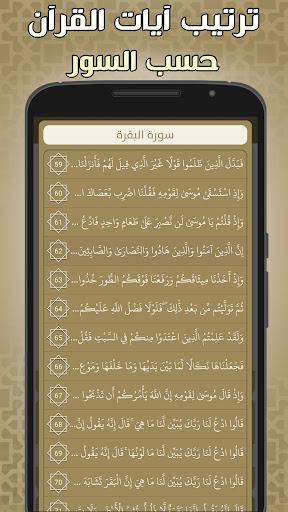 ترتيب آيات القرآن
حسب السور
سورة البقرة
فَبَدَّلَ الَّذِينَ ظَلَمُوا قَوْلًا غَيْرَ الَّذِي قِيلَ لَهُمْ فَأَنزَلْنَا... 59
وَإِذِ اسْتَسْقَىٰ مُوسَىٰ لِقَوْمِهِ فَقُلْنَا اضْرِب بِّعَصَاكَ ا... 60
وَإِذْ قُلْتُمْ يَا مُوسَىٰ لَن نَّصْبِرَ عَلَىٰ طَعَامٍ وَاحِدٍ فَادْعُ ... 61
إِنَّ الَّذِينَ آمَنُوا وَالَّذِينَ هَادُوا وَالنَّصَارَىٰ وَالصَّابِئِينَ... 62
وَإِذْ أَخَذْنَا مِيثَاقَكُمْ وَرَفَعْنَا فَوْقَكُمُ الطُّورَ خُذُوا... 63
ثُمَّ تَوَلَّيْتُم مِّن بَعْدِ ذَٰلِكَ ۖ فَلَوْلَا فَضْلُ اللَّهِ عَلَيْكُمْ... 64
وَلَقَدْ عَلِمْتُمُ الَّذِينَ اعْتَدَوْا مِنكُمْ فِي السَّبْتِ فَقُلْ... 65
فَجَعَلْنَاهَا نَكَالًا لِّمَا بَيْنَ يَدَيْهَا وَمَا خَلْفَهَا وَمَوْع... 66
وَإِذْ قَالَ مُوسَىٰ لِقَوْمِهِ إِنَّ اللَّهَ يَأْمُرُكُمْ أَن تَذْبَحُوا ... 67
قَالُوا ادْعُ لَنَا رَبَّكَ يُبَيِّن لَّنَا مَا هِيَ ۚ قَالَ إِنَّهُ يَقُولُ إِنَّ... 68
قَالُوا ادْعُ لَنَا رَبَّكَ يُبَيِّن لَّنَا مَا لَوْنُهَا ۚ قَالَ إِنَّهُ يَقُو... 69
قَالُوا ادْعُ لَنَا رَبَّكَ يُبَيِّن لَّنَا مَا هِيَ إِنَّ الْبَقَرَ تَشَابَهَ ... 70